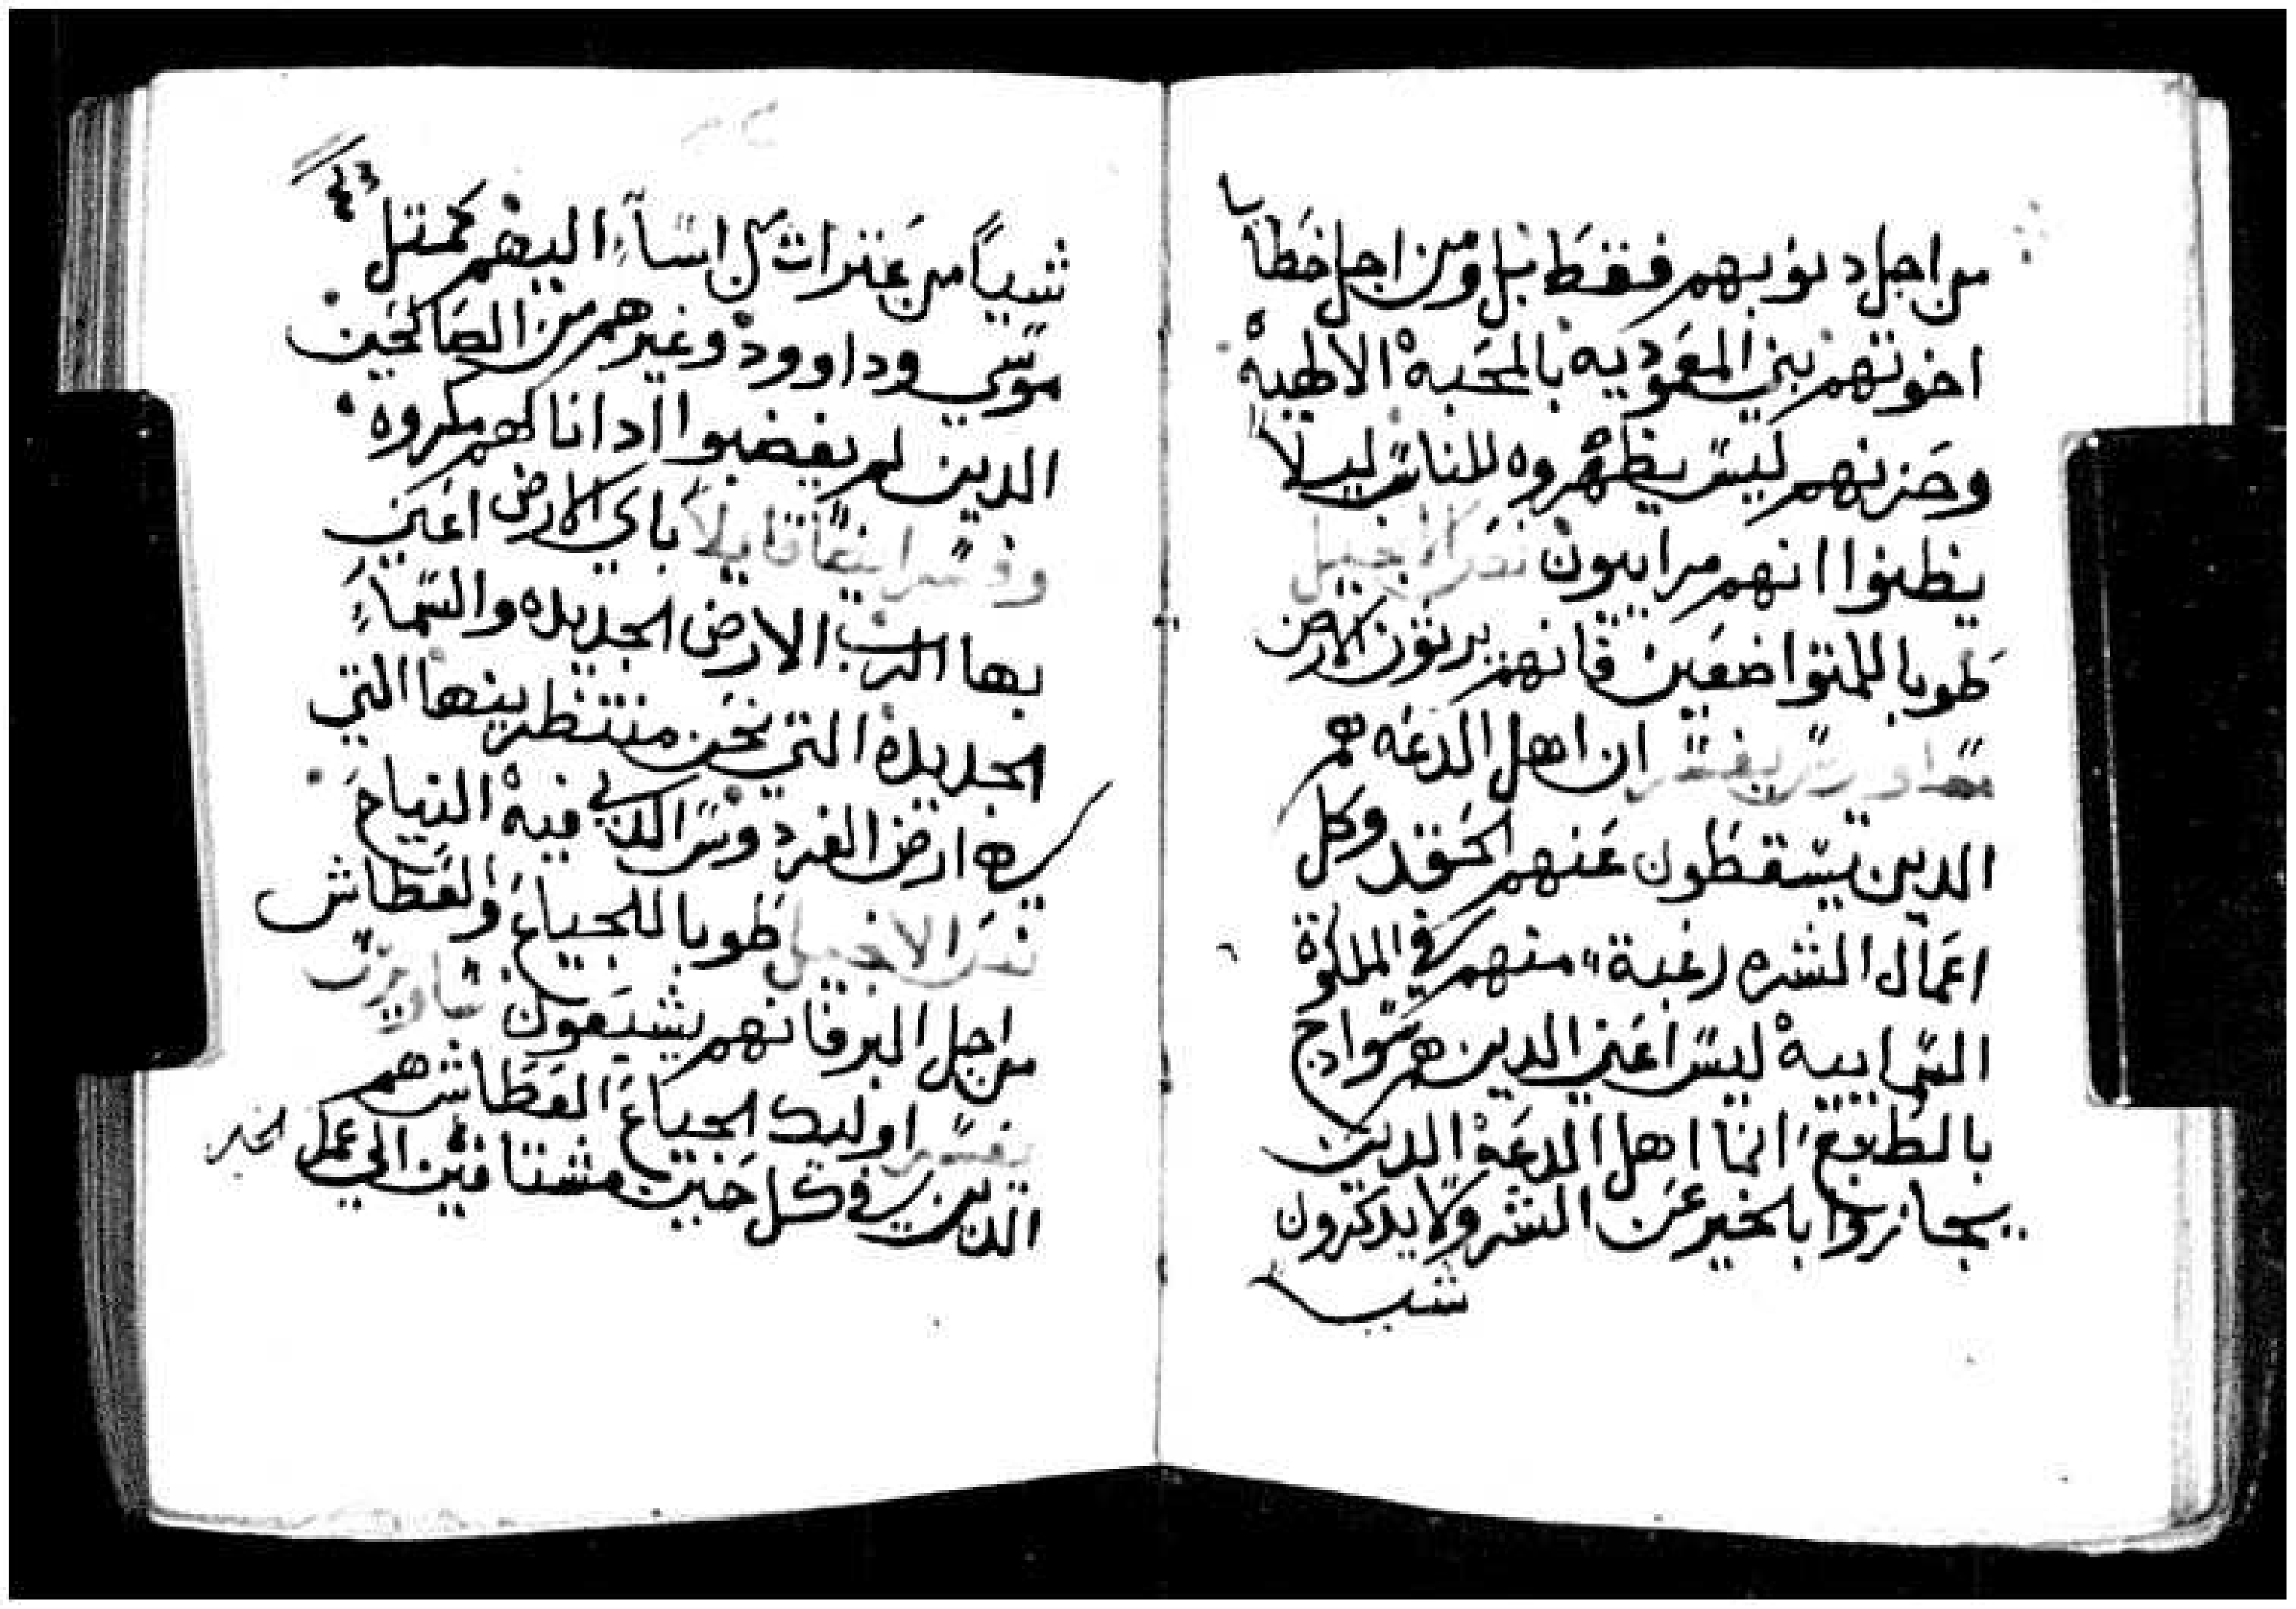 من اجل دنوبهم فقط بل ومن اجل خطايا
اخوتهم بني المعموديه بالمحبة الالهية
وحزنهم ليس يظهروه للناس ليلا
يظنوا انهم مراييون نص الانجيل
طوبا للمتواضعين فانهم يرتون الارض
ساويرس يفسر ان اهل الدعه هم
الدين يسقطون عنهم الحقد وكل
اعمال الشره رغبة منهم في الملكوة
السماييه ليس اعني الدين هم سواج
بالطبع انما اهل الدعة الدين
يجازوا بالخير عن الشر ولا يدكرون
شيا
شياً من عترات من اسآء اليهم كمتل
موسي وداوود وغيرهم من الصالحين
الدين لم يغضبوا ادا نالهم مكروه
وفسر ايضاً قايلاً باي الارض اعني
بها الرب الارض الجديده والسمآء
الجديده التي نحن منتظرينها التي
هي ارض الفردوس الدي فيه النياح
نص الانجيل طوبا للجياع والعطاش
من اجل البر فانهم يشبعون ساويرس
يفسر اوليك الجياع العطاش هم
الدين في كل حين مشتاقين الي عمل الخير